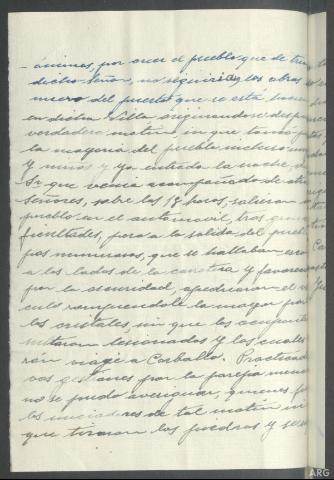 - ánimos, por creer el pueblo que de
dicho Señor, no seguirían las obras
muro del puerto que se está
en dicha Villa originandose des
verdadero motín, en que tomó
la mayoria del pueblo incluso
y niños y ya entrada la noche,
Sr. que venía acompañado de
Señores, sobre las 18 horas, salieron
pueblo en el automovil, tras gran
ficultades, pero a la salida del pueb
pos numerosos, que se hallaban
a los lados de la carretera y favorec
por la oscuridad, apedrearon el
culo rompiendole la mayor par
los cristales, sin que los ocupante
sultaran lesionados y los cuales
ron viaje a Carballo. Practicad
vas gestiones por la pareja
no se pudo averiguar, quienes f
los iniciadores de tal motín ni
que tiraron las piedras y se
ARG